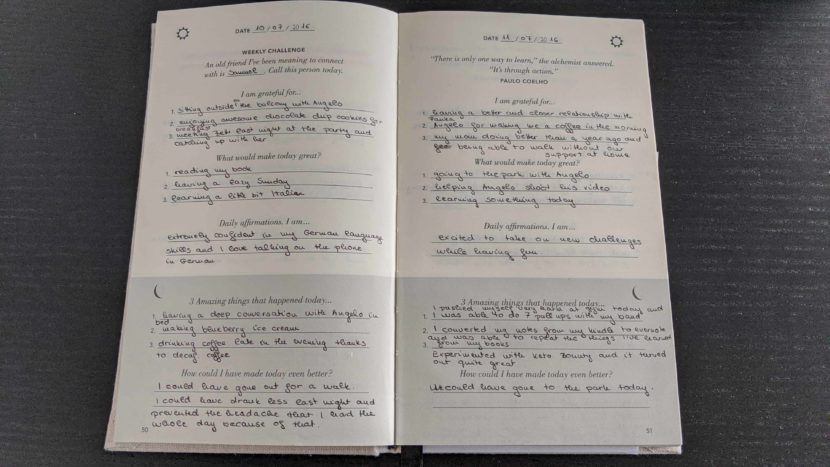 DATE 10/07/2016
WEEKLY CHALLENGE
An old friend I've been meaning to connect
with is Samuel. Call this person today.
I am grateful for...
1. Sitting outside on the balcony with Angelo
2. enjoying awesome chocolate chip cookies for
breakfast
3. meeting last night at the party and
catching up with her
What would make today great?
1. reading my book
2. having a lazy Sunday
3. learning a little bit Italian
Daily affirmations. I am...
extremely confident in my German language
skills and I love talking on the phone
in German
3 Amazing things that happened today...
1. having a deep conversation with Angelo in
bed
2. making blueberry ice cream
3. drinking coffee late in the evening thanks
to decaf coffee
How could I have made today even better?
I could have gone out for a walk.
I could have drank less last night and
prevented the headache that I had the
whole day because of that.
50
DATE 11/07/2016
"There is only one way to learn," the alchemist answered.
"It's through action."
PAULO COELHO
I am grateful for...
1. having a better and closer relationship with
2. Angelo for making me a coffee in the morning
3. my mom doing better than a year ago and
being able to walk without our
support at home
What would make today great?
1. going to the park with Angelo
2. helping Angelo shoot his video
3. learning something today
Daily affirmations. I am...
excited to take on new challenges
while having fun
3 Amazing things that happened today...
1. I pushed myself very hard at gym today and
I was able to do 7 pull ups with my band
2. I converted my notes from my kindle to evernote
and was able to repeat the things I've learned
from my books
Experimented with keto Bounty and it turned
out quite great
How could I have made today even better?
We could have gone to the park today.
51